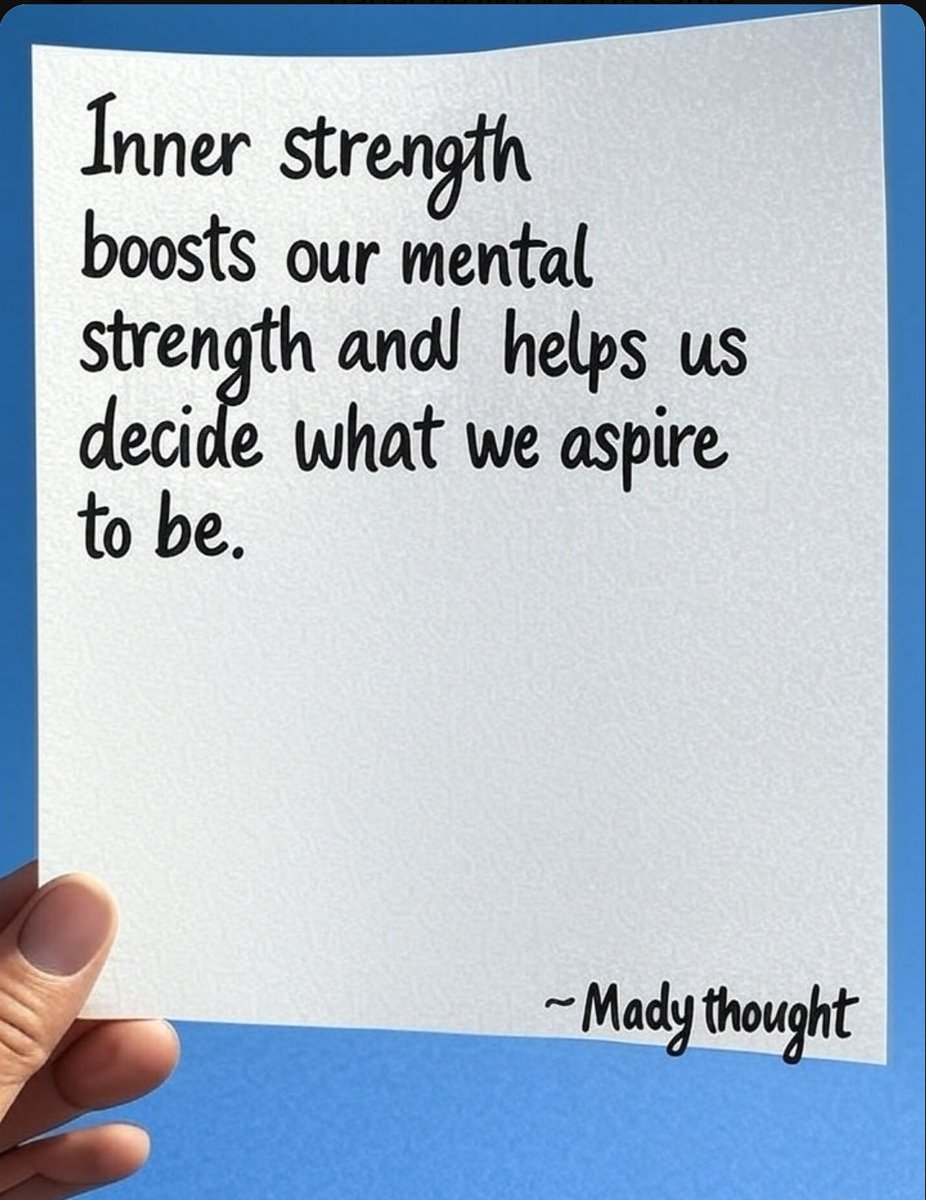 Inner strength
boosts our mental
strength and helps us
decide what we aspire
to be.
~Mady thought